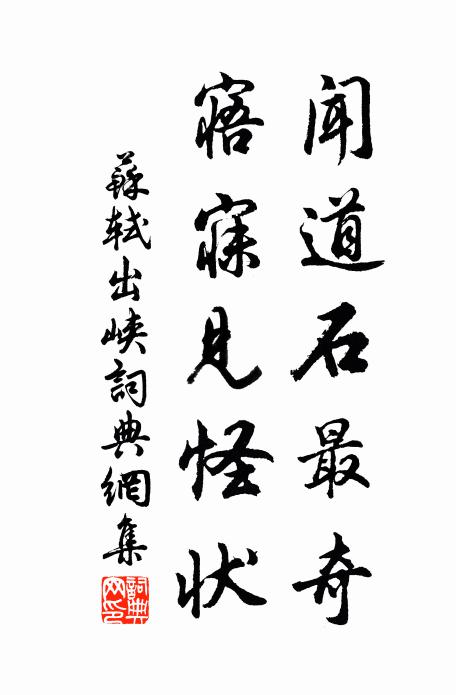 聞道石最奇
寤寐見怪狀
蘇軾出峽詞典網集
詞典网印